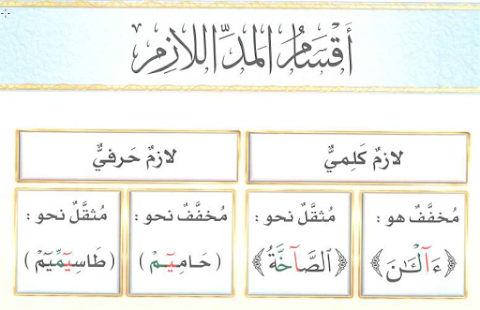 أَقْسَامُ المَدِّ اللَّازِمِ
لازمٌ كَلِمِيٌّ
لازمٌ حَرفيٌّ
مُخفَّفٌ هو :
﴿ءَآلْـَٰٔنَ﴾
مُثقَّلٌ نحو :
﴿ٱلصَّآخَّةُ﴾
مُخفَّفٌ نحو :
( حَامِيٓمْ )
مُثقَّلٌ نحو :
( طَاسِيٓمِّيٓمْ )